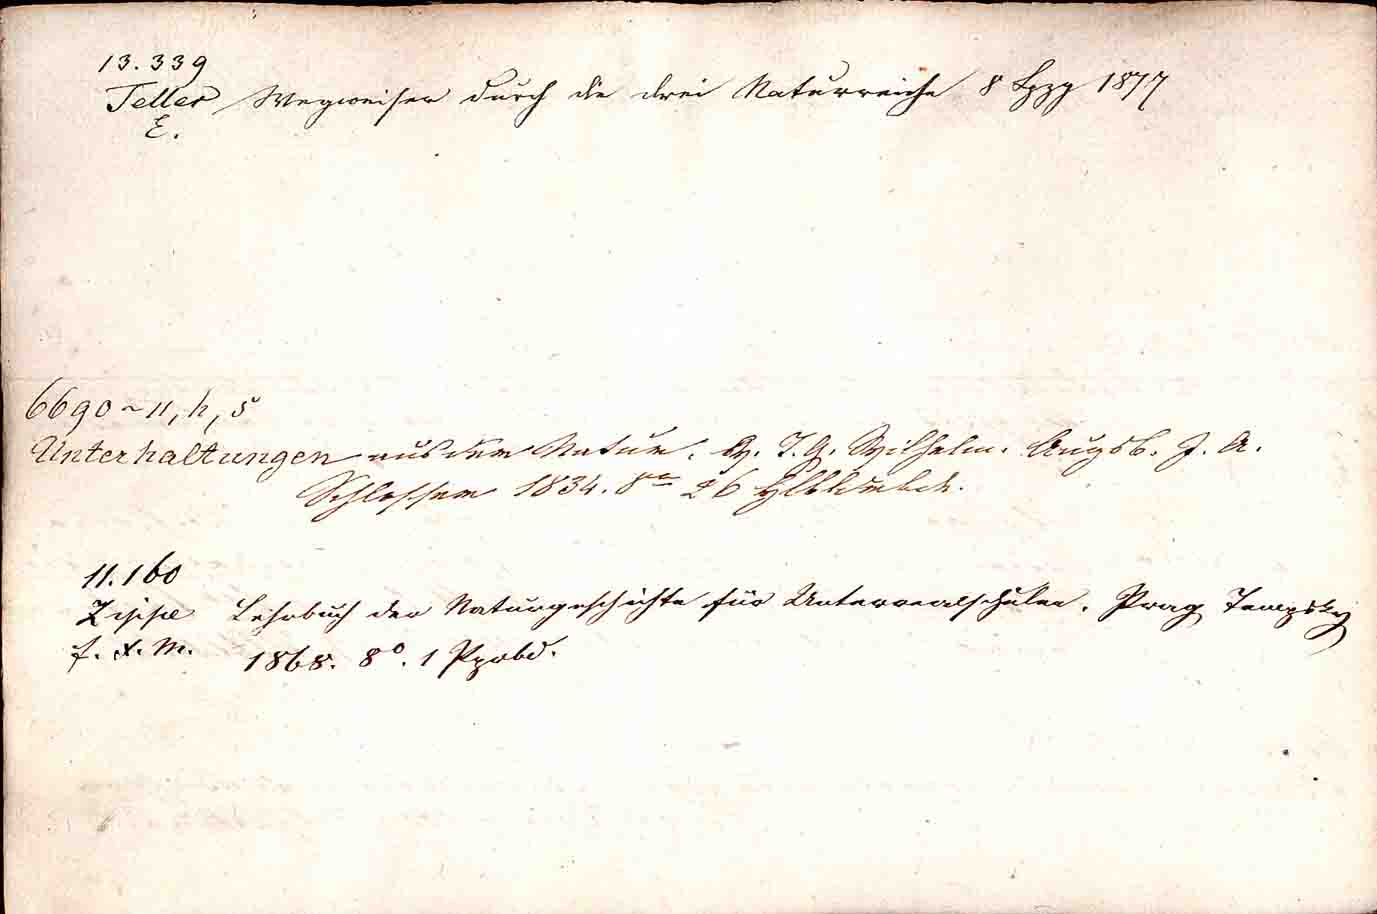 13.339
Teller Wegweiser durch die drei Naturreiche 8 Lpzg 1877
E.
6690 ~ 11, h, 5
Unterhaltungen aus der Natur. v. J. G. Wilhelm. Augsb. J. A.
Schlosser 1834. 8vo 26 Hlbldrbde.
11.160
Zippe Lehrbuch der Naturgeschichte für Unterrealschulen. Prag Tempsky
f. X. M. 1868. 8°. 1 Pppbd.